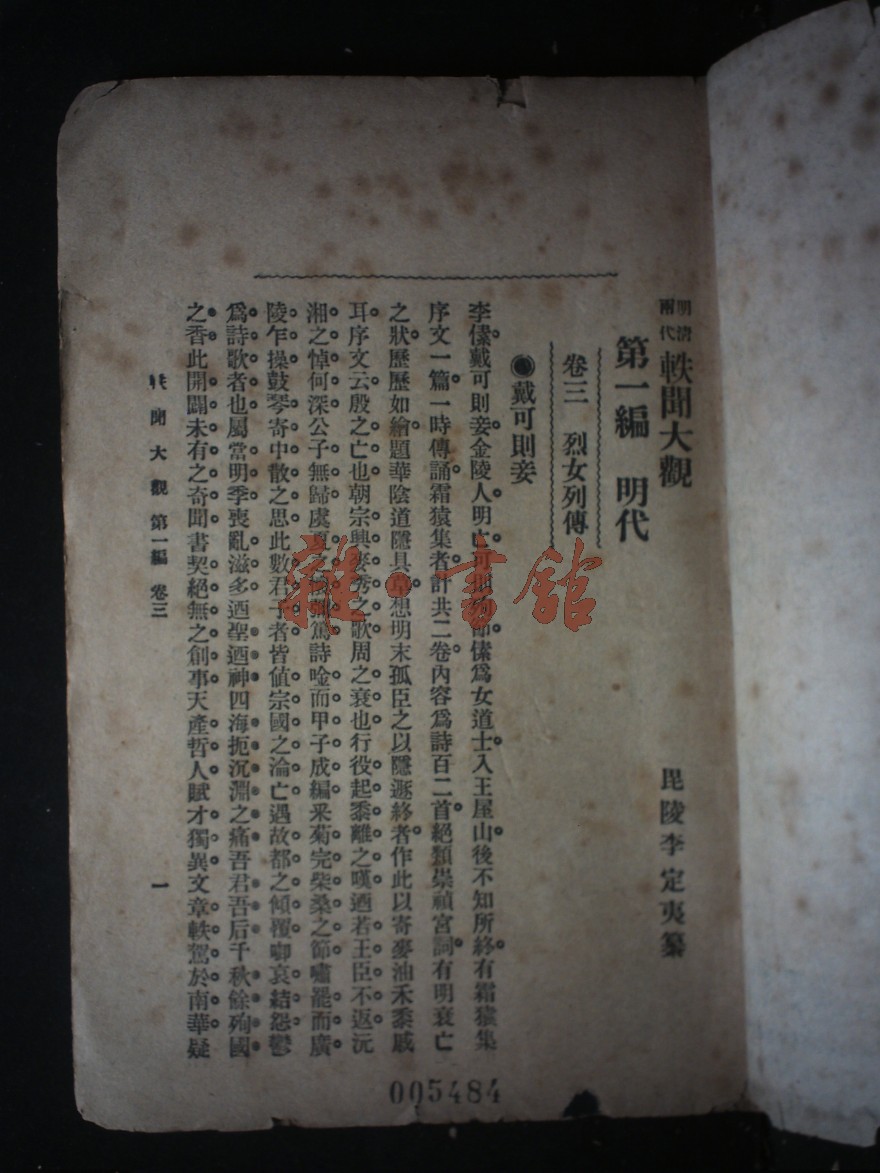 明清兩代 軼聞大觀
毘陵李定夷纂
第一編 明代
卷三 烈女列傳
◉戴可則妾
李傃戴可則妾金陵人明亡可則殉節傃爲女道士入王屋山後不知所終有霜猿集
序文一篇一時傳誦霜猿集者計共二卷內容爲詩百二首絕類崇禎宮詞有明衰亡
之狀歷歷如繪題華陰道隱具草想明末孤臣之以隱遯終者作此以寄麥油禾黍戚
耳序文云殷之亡也朝宗興麥秀之歌周之衰也行役起黍離之嘆迺若王臣不返沅
湘之悼何深公子無歸虞夏之 篤詩唫而甲子成編采菊完柴桑之節嘯罷而廣
陵乍操鼓琴寄中散之思此數君子者皆値宗國之淪亡遇故都之傾覆啣哀結怨鬱
爲詩歌者也屬當明季喪亂滋多迺聖迺神四海扼沉淵之痛吾君吾后千秋餘殉國
之香此開闢未有之奇聞書契絕無之創事天產哲人賦才獨異文章軼駕於南華疑
軼聞大觀 第一編 卷三
一
005484
雜·書館